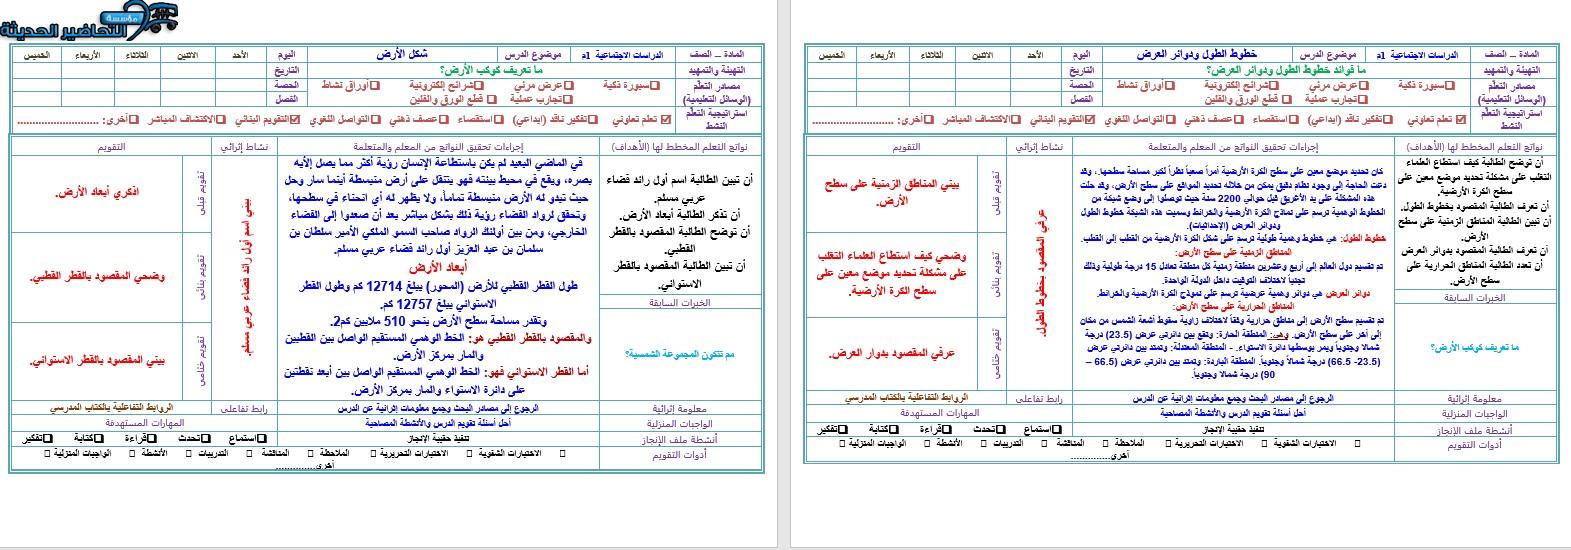 المادة – الصف
الدراسات الاجتماعية 1م
موضوع الدرس
خطوط الطول ودوائر العرض
اليوم
الأحد
الاثنين
الثلاثاء
الأربعاء
الخميس
التهيئة والتمهيد
ما فوائد خطوط الطول ودوائر العرض؟
التاريخ
مصادر التعلم
(الوسائل التعليمية)
❑سبورة ذكية
❑عرض مرئي
❑شرائح إلكترونية
❑أوراق نشاط
❑تجارب عملية
❑ قطع الورق والفلين
الحصة
الفصل
استراتيجية التعلم
النشط
☑ تعلم تعاوني
❑تفكير ناقد (ابداعي)
❑استقصاء
❑عصف ذهني
❑التواصل اللغوي
☑التقويم البنائي
❑الاكتشاف المباشر
❑أخرى: .........................
نواتج التعلم المخطط لها (الأهداف)
إجراءات تحقيق النواتج من المعلم والمتعلمة
نشاط إثرائي
التقويم
أن توضح الطالبة كيف استطاع العلماء
التغلب على مشكلة تحديد موضع معين على
سطح الكرة الأرضية.
أن تعرف الطالبة المقصود بخطوط الطول.
أن تبين الطالبة المناطق الزمنية على سطح
الأرض.
أن تعرف الطالبة المقصود بدوائر العرض
أن تعدد الطالبة المناطق الحرارية على
سطح الأرض.
الخبرات السابقة
ما تعريف كوكب الأرض؟
كان تحديد موضع معين على سطح الكرة الأرضية أمراً صعباً نظراً لكبر مساحة سطحها.، وقد
دعت الحاجة إلى وجود نظام دقيق يمكن من خلاله تحديد المواقع على سطح الأرض، وقد حلت
هذه المشكلة على يد الأغريق قبل حوالي 2200 سنة حيث توصلوا إلى وضع شبكة من
الخطوط الوهمية ترسم على نماذج الكرة الأرضية والخرائط وسميت هذه الشبكة خطوط الطول
ودوائر العرض (الإحداثيات).
خطوط الطول: هي خطوط وهمية طولية ترسم على شكل الكرة الأرضية من القطب إلى القطب.
المناطق الزمنية على سطح الأرض:
تم تقسيم دول العالم إلى أربع وعشرين منطقة زمنية كل منطقة تعادل 15 درجة طولية وذلك
تجنباً لاختلاف التوقيت داخل الدولة الواحدة.
دوائر العرض هي دوائر وهمية عرضية ترسم على نموذج الكرة الأرضية والخرائط.
المناطق الحرارية على سطح الأرض:
تم تقسيم سطح الأرض إلى مناطق حرارية وفقاً لاختلاف زاوية سقوط أشعة الشمس من مكان
إلى آخر على سطح الأرض، وهي: المنطقة الحارة: وتقع بين دائرتي عرض (23.5) درجة
شمالا وجنوبا ويمر بوسطها دائرة الاستواء. - المنطقة المعتدلة: وتمتد بين دائرتي عرض
(23.5- 66.5) درجة شمالاً وجنوبياً. المنطقة الباردة: وتمتد بين دائرتي عرض (66.5 –
90) درجة شمالا وجنوبياً.
عرفي المقصود بخطوط الطول.
تقويم قبلي
بيني المناطق الزمنية على سطح
الأرض.
تقويم بنائي
وضحي كيف استطاع العلماء التغلب
على مشكلة تحديد موضع معين على
سطح الكرة الأرضية.
تقويم ختامي
عرفي المقصود بدوار العرض.
معلومة إثرائية
الرجوع إلى مصادر البحث وجمع معلومات إثرائية عن الدرس
رابط تفاعلي
الروابط التفاعلية بالكتاب المدرسي
الواجبات المنزلية
أحل أسئلة تقويم الدرس والأنشطة المصاحبة
المهارات المستهدفة
أنشطة ملف الإنجاز
تنفيذ حقيبة الإنجاز
❑استماع
❑تحدث
❑قراءة
❑كتابة
❑تفكير
أدوات التقويم
□ الاختبارات الشفوية □ الاختبارات التحريرية □ الملاحظة □ المناقشة □ التدريبات □ الأنشطة □ الواجبات المنزلية □
أخرى..............
مؤسسة
التحاضير الحديثة
المادة – الصف
الدراسات الاجتماعية 1م
موضوع الدرس
شكل الأرض
اليوم
الأحد
الاثنين
الثلاثاء
الأربعاء
الخميس
التهيئة والتمهيد
ما تعريف كوكب الأرض؟
التاريخ
مصادر التعلم
(الوسائل التعليمية)
❑سبورة ذكية
❑عرض مرئي
❑شرائح إلكترونية
❑أوراق نشاط
❑تجارب عملية
❑ قطع الورق والفلين
الحصة
الفصل
استراتيجية التعلم
النشط
☑ تعلم تعاوني
❑تفكير ناقد (ابداعي)
❑استقصاء
❑عصف ذهني
❑التواصل اللغوي
☑التقويم البنائي
❑الاكتشاف المباشر
❑أخرى: .........................
نواتج التعلم المخطط لها (الأهداف)
إجراءات تحقيق النواتج من المعلم والمتعلمة
نشاط إثرائي
التقويم
أن تبين الطالبة اسم أول رائد فضاء
عربي مسلم.
أن تذكر الطالبة أبعاد الأرض.
أن توضح الطالبة المقصود بالقطر
القطبي.
أن تبين الطالبة المقصود بالقطر
الاستواني.
الخبرات السابقة
مم تتكون المجموعة الشمسية؟
في الماضي البعيد لم يكن باستطاعة الإنسان رؤية أكثر مما يصل إلأيه
بصره، ويقع في محيط بيئته فهو يتنقل على أرض منبسطة أينما سار وحل
حيث تبدو له الأرض منبسطة تماماً، ولا يظهر له أي انحناء في سطحها،
وتحقق لرواد الفضاء رؤية ذلك بشكل مباشر بعد أن صعدوا إلى الفضاء
الخارجي، ومن بين أولئك الرواد صاحب السمو الملكي الأمير سلطان بن
سلمان بن عبد العزيز أول رائد فضاء عربي مسلم.
أبعاد الأرض
طول القطر القطبي للأرض (المحور) يبلغ 12714 كم وطول القطر
الاستواني يبلغ 12757 كم.
وتقدر مساحة سطح الأرض بنحو 510 ملايين كم2.
والمقصود بالقطر القطبي هو: الخط الوهمي المستقيم الواصل بين القطبين
والمار بمركز الأرض.
أما القطر الاستواني فهو: الخط الوهمي المستقيم الواصل بين أبعد نقطتين
على دائرة الاستواء والمار بمركز الأرض.
بيني اسم أول رائد فضاء عربي مسلم.
تقويم قبلي
اذكري أبعاد الأرض.
تقويم بنائي
وضحي المقصود بالقطر القطبي.
تقويم ختامي
بيني المقصود بالقطر الاستواني.
معلومة إثرائية
الرجوع إلى مصادر البحث وجمع معلومات إثرائية عن الدرس
رابط تفاعلي
الروابط التفاعلية بالكتاب المدرسي
الواجبات المنزلية
أحل أسئلة تقويم الدرس والأنشطة المصاحبة
المهارات المستهدفة
أنشطة ملف الإنجاز
تنفيذ حقيبة الإنجاز
❑استماع
❑تحدث
❑قراءة
❑كتابة
❑تفكير
أدوات التقويم
□ الاختبارات الشفوية □ الاختبارات التحريرية □ الملاحظة □ المناقشة □ التدريبات □ الأنشطة □ الواجبات المنزلية □
أخرى..............